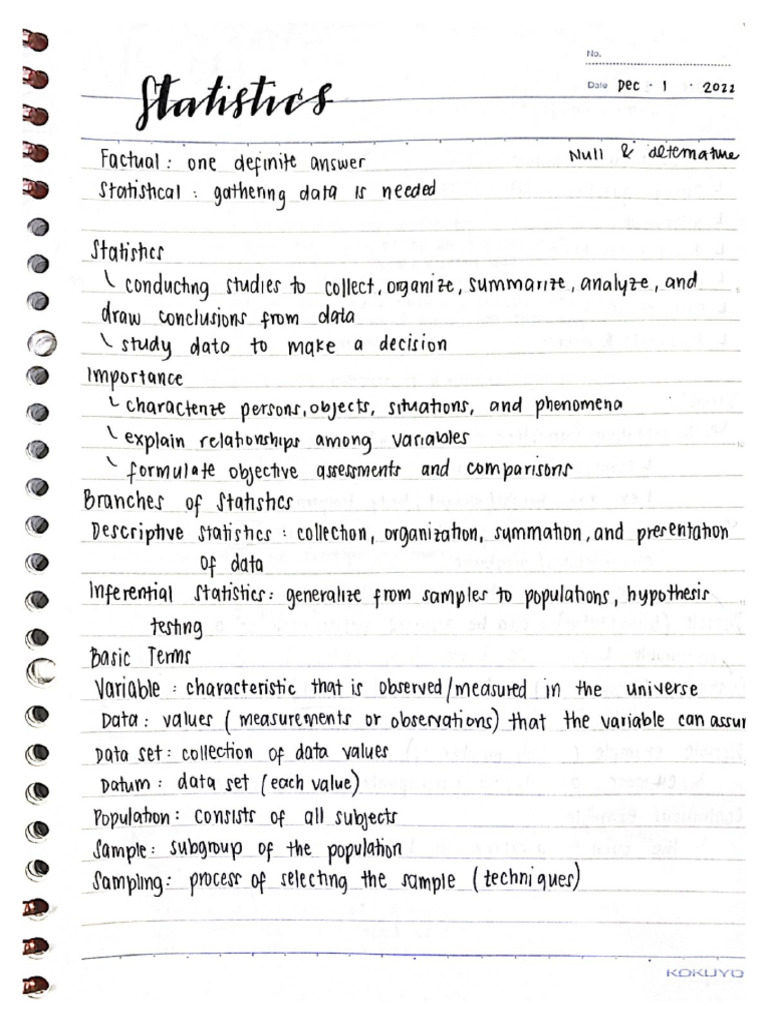 No.
Statistics
Date Dec · 1 · 2022
Factual: one definite answer
Null & alternative
Statistical: gathering data is needed
Statistics
conducting studies to collect, organize, summarize, analyze, and
draw conclusions from data
study data to make a decision
Importance
characterize persons, objects, situations, and phenomena
explain relationships among variables
formulate objective assessments and comparisons
Branches of Statistics
Descriptive Statistics: collection, organization, summation, and presentation
of data
Inferential Statistics: generalize from samples to populations, hypothesis
testing
Basic Terms
Variable: characteristic that is observed/measured in the universe
Data: values (measurements or observations) that the variable can assum
Data set: collection of data values
Datum: data set (each value)
Population: consists of all subjects
Sample: subgroup of the population
Sampling: process of selecting the sample (techniques)
KOKUYO